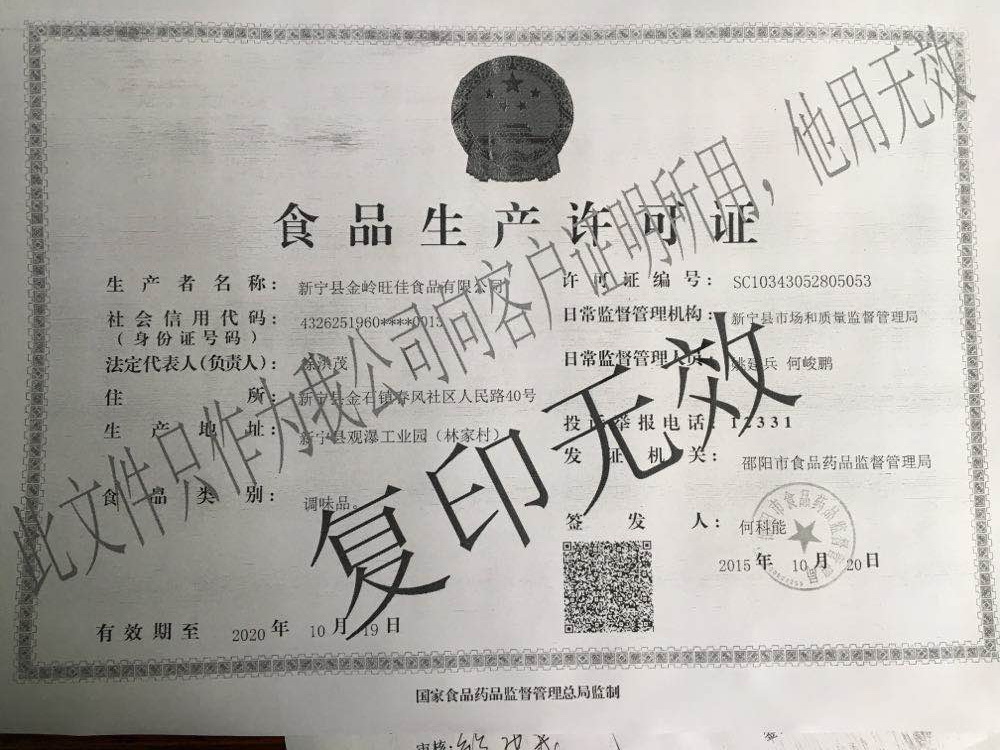 食品生产许可证
生产者名称： 新宁县金岭旺佳食品有限公司
社会信用代码： 4326251960****0013
（身份证号码）
法定代表人(负责人)： 洪茂
住所： 新宁县金石镇春风社区人民路40号
生产地址： 新宁县观瀑工业园（林家村）
食品类别： 调味品。
许可证编号： SC10343052805053
日常监督管理机构： 新宁县市场和质量监督管理局
日常监督管理人员： 姚建兵 何峻鹏
投诉举报电话： 12331
发证机关： 邵阳市食品药品监督管理局
签发人： 何科能
2015年10月20日
有效期至 2020年10月19日
国家食品药品监督管理总局监制
此文件只作为我公司向客户证明所用，他用无效
复印无效
市食品药品监督管理局
审核：